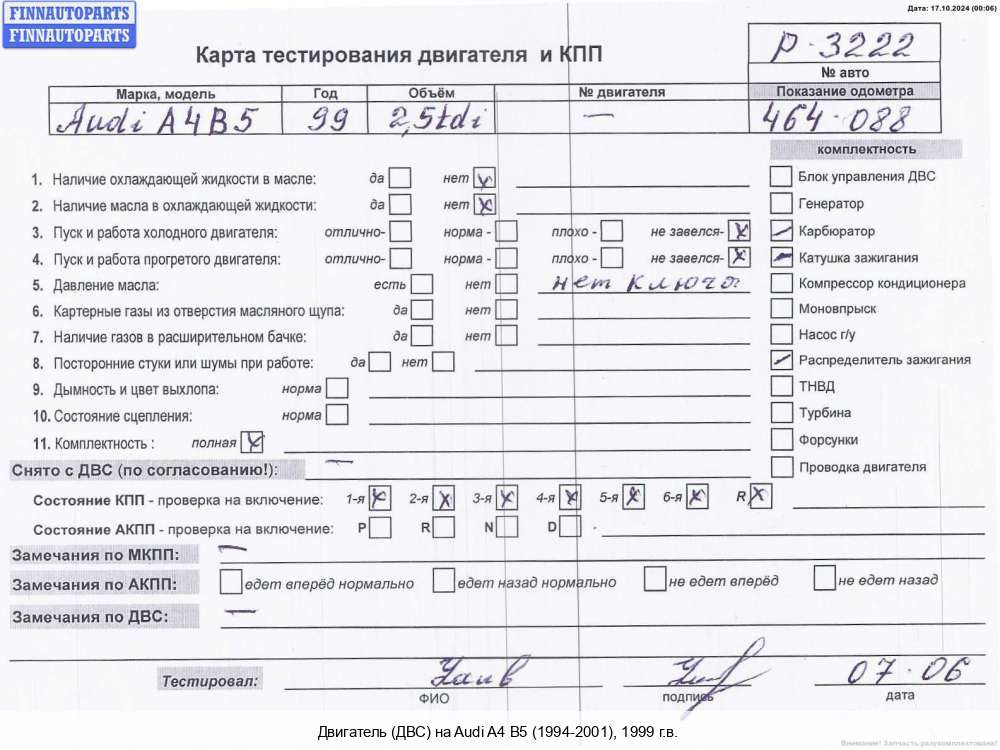 FINNAUTOPARTS
FINNAUTOPARTS
Дата: 17.10.2024 (00:06)
Карта тестирования двигателя и КПП
P-3222
№ авто
Марка, модель Год Объём № двигателя Показание одометра
Audi A4 B5 99 2,5tdi — 464-088
комплектность
1. Наличие охлаждающей жидкости в масле: да нет
Блок управления ДВС
2. Наличие масла в охлаждающей жидкости: да нет
Генератор
3. Пуск и работа холодного двигателя: отлично- норма - плохо - не завелся-
Карбюратор
4. Пуск и работа прогретого двигателя: отлично- норма - плохо - не завелся-
Катушка зажигания
5. Давление масла: есть нет нет ключа
Компрессор кондиционера
6. Картерные газы из отверстия масляного щупа: да нет
Моновпрыск
7. Наличие газов в расширительном бачке: да нет
Насос г/у
8. Посторонние стуки или шумы при работе: да нет
Распределитель зажигания
9. Дымность и цвет выхлопа: норма
ТНВД
10. Состояние сцепления: норма
Турбина
11. Комплектность : полная
Форсунки
Снято с ДВС (по согласованию!): —
Проводка двигателя
Состояние КПП - проверка на включение: 1-я 2-я 3-я 4-я 5-я 6-я R
Состояние АКПП - проверка на включение: P R N D
Замечания по МКПП: —
Замечания по АКПП: едет вперёд нормально едет назад нормально не едет вперёд не едет назад
Замечания по ДВС: —
Тестировал: 07.06
ФИО подпись дата
Двигатель (ДВС) на Audi A4 B5 (1994-2001), 1999 г.в.
Внимание! Запчасть разукомплектована!